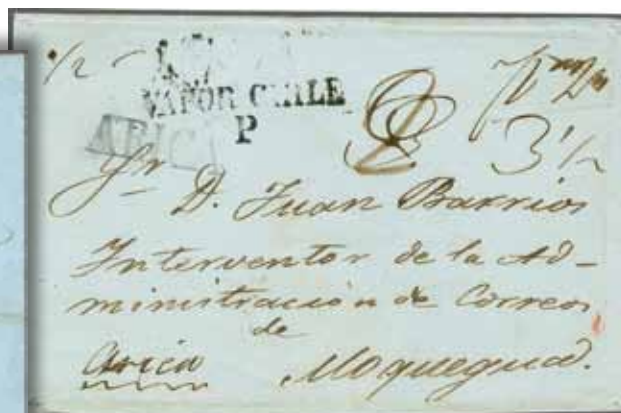 1/2
VAPOR CHILE
P
ARICA
3 1/2
Sr D. Juan Barrios
Interventor de la Ad-
ministracion de Correos
de
Arica Moquegua.